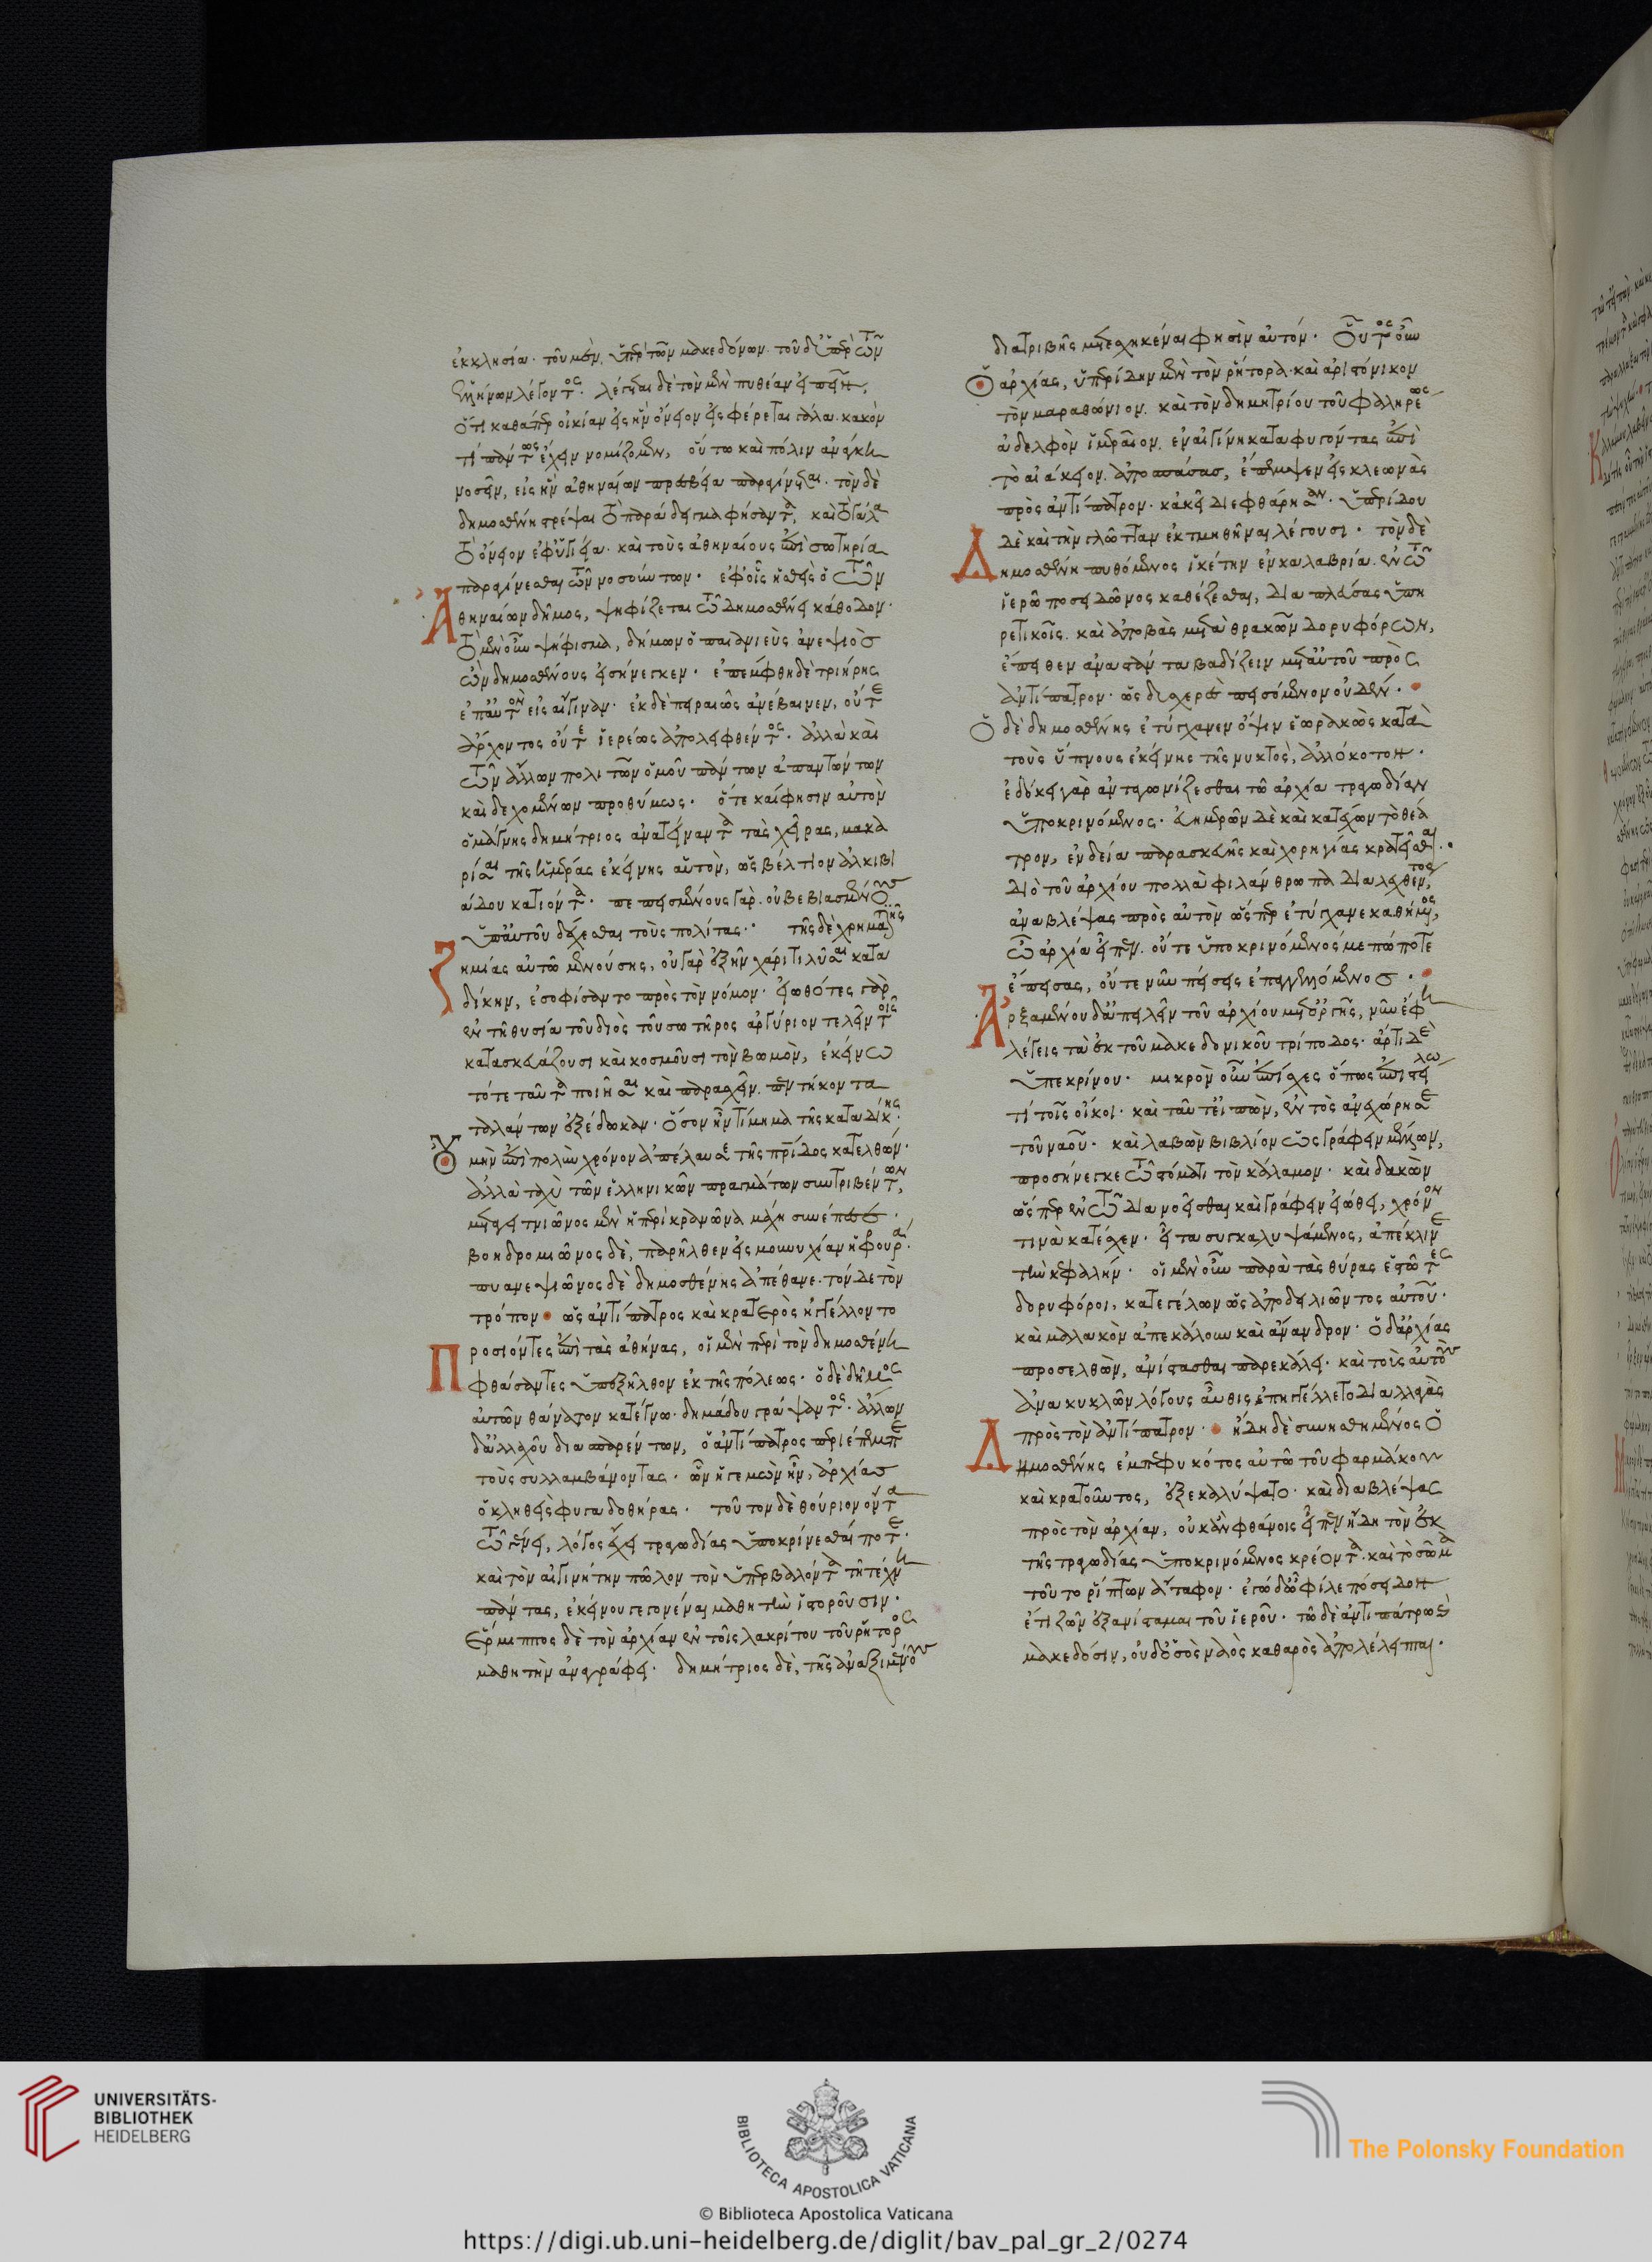 ἐκκλησία. τοῦ μὲν, ὑπὲρ τῶν μακεδόνων. τοῦ δὲ ὑπὲρ τῶν
ἑλλήνων λέγοντος. λέγεται δὲ τὸν μὲν πυθέαν εἰπεῖν,
ὅτι καθάπερ οἰκίαν εἰς ἣν ὄνειον εἰσφέρεται γάλα. κακόν
τι πάντως ἔχειν νομίζομεν, οὕτω καὶ πόλιν ἀνάγκη
νοσεῖν, εἰς ἣν ἀθηναίων πρεσβεία παραγίνεται. τὸν δὲ
δημοσθένη τρέψαι τὸ παράδειγμα φήσαντα, καὶ τὸ γάλα
τὸ ὄνειον ἐφ' ὑγιεία. καὶ τοὺς ἀθηναίους ἐπὶ σωτηρία
παραγίνεσθαι τῶν νοσούντων. ἐφ' οἷς ἡσθεὶς ὁ τῶν
Ἀθηναίων δῆμος, ψηφίζεται τῶ δημοσθένει κάθοδον.
τὸ μὲν οὖν ψήφισμα, δήμων ὁ παιανιεὺς ἀνεψιὸς
ὢν δημοσθένους εἰσήνεγκεν. ἐπέμφθη δὲ τριήρης
ἐπ' αὐτὸν εἰς αἴγιναν. ἐκ δὲ πειραιῶς ἀνέβαινεν, οὔτε
ἄρχοντος οὔτε ἱερέως ἀπολειφθέντος. ἀλλὰ καὶ
τῶν ἄλλων πολιτῶν ὁμοῦ πάντων ἀπαντώντων
καὶ δεχομένων προθύμως. ὅτε καί φησιν αὐτὸν
ὁ μάγνης δημήτριος ἀνατείναντα τὰς χεῖρας, μακα
ρίσαι τῆς ἡμέρας ἐκείνης αὑτὸν, ὡς βέλτιον ἀλκιβι
άδου κατιόντα. πεπεισμένους γὰρ. οὐ βεβιασμένους
ὑπ' αὐτοῦ δέχεσθαι τοὺς πολίτας. τῆς δὲ χρηματικῆς
ζημίας αὐτῶ μενούσης, οὐ γὰρ ἐξῆν χάριτι λῦσαι κατα
δίκην, ἐσοφίσαντο πρὸς τὸν νόμον. εἰωθότες γὰρ
ἐν τῆ θυσία τοῦ διὸς τοῦ σωτῆρος ἀργύριον τελεῖν τοῖς
κατασκευάζουσι καὶ κοσμοῦσι τὸν βωμὸν, ἐκείνω
τότε ταῦτα ποιῆσαι καὶ παρασχεῖν. πεντήκοντα
ταλάντων ἐξέδωκαν. ὅσον ἦν τίμημα τῆς καταδίκης.
Οὐ μὴν ἐπὶ πολὺν χρόνον ἀπέλαυσε τῆς πατρίδος κατελθών.
ἀλλὰ ταχὺ τῶν ἑλληνικῶν πραγμάτων συντριβέντων,
μεταγειτνιῶνος μὲν ἡ περὶ κρανῶνα μάχη συνέπεσε.
βοηδρομιῶνος δὲ, παρῆλθεν εἰς μουνυχίαν ἡ φουρά.
πυανεψιῶνος δὲ δημοσθένης ἀπέθανε. τόνδε τὸν
τρόπον. ὡς ἀντίπατρος καὶ κρατερὸς ἠγγέλλοντο
Προσιόντες ἐπὶ τὰς ἀθήνας, οἱ μὲν περὶ τὸν δημοσθένη
φθάσαντες ὑπεξῆλθον ἐκ τῆς πόλεως. ὁ δὲ δῆμος
αὐτῶν θάνατον κατέγνω. δημάδου γράψαντος. ἄλλων
δ' ἀλλαχοῦ διασπαρέντων, ὁ ἀντίπατρος περιέπεμπε
τοὺς συλλαμβάνοντας. ὧν ἡγεμὼν ἦν, ἀρχίας
ὁ κληθεὶς φυγαδοθήρας. τοῦτον δὲ θούριον ὄντα
τῶ γένει, λόγος ἔχει τραγωδίας ὑποκρίνεσθαί ποτε.
καὶ τὸν αἰγινήτην πῶλον τὸν ὑπερβαλόντα τῆ τέχνη
πάντας, ἐκείνου γεγονέναι μαθητὴν ἱστοροῦσιν.
Ἕρμιππος δὲ τὸν ἀρχίαν ἐν τοῖς λακρίτου τοῦ ῥήτορος
μαθητὴν ἀναγράφει. δημήτριος δὲ, τῆς ἀναξιμένους
διατριβῆς μετεσχηκέναι φησὶν αὐτόν. Οὗτος οὖν
Ὁ ἀρχίας, ὑπερίδην μὲν τὸν ῥήτορα. καὶ ἀριστόνικον
τὸν μαραθώνιον. καὶ τὸν δημητρίου τοῦ φαληρέως
ἀδελφὸν ἱμεραῖον. ἐν αἰγίνη καταφυγόντας ἐπὶ
τὸ αἰάκειον. ἀποσπάσας, ἔπεμψεν εἰς κλεωνὰς
πρὸς ἀντίπατρον. κἀκεῖ διεφθάρησαν. ὑπερίδου
δὲ καὶ τὴν γλῶτταν ἐκτμηθῆναι λέγουσι. τὸν δὲ
Δημοσθένη πυθόμενος ἱκέτην ἐν καλαβρία. ἐν τῶ
ἱερῶ ποσειδῶνος καθέζεσθαι, διαπλεύσας ὑπη
ρετικοῖς. καὶ ἀποβὰς μετὰ θρακῶν δορυφόρων,
ἔπειθεν ἀναστάντα βαδίζειν μετ' αὐτοῦ πρὸς
ἀντίπατρον. ὡς δυσχερὲς πεισόμενον οὐδέν.
Ὁ δὲ δημοσθένης ἐτύγχανεν ὄψιν ἑωρακὼς κατὰ
τοὺς ὕπνους ἐκείνης τῆς νυκτὸς, ἀλλόκοτον.
ἐδόκει γὰρ ἀνταγωνίζεσθαι τῶ ἀρχία τραγωδίαν
ὑποκρινόμενος. εὐημερῶν δὲ καὶ κατέχων τὸ θέα
τρον, ἐνδεία παρασκευῆς καὶ χορηγίας κρατεῖσθαι.
διὸ τοῦ ἀρχίου πολλὰ φιλάνθρωπα διαλεχθέντος,
ἀναβλέψας πρὸς αὐτὸν ὥσπερ ἐτύγχανε καθήμενος,
ὦ ἀρχία εἶπεν. οὔτε ὑποκρινόμενός με πώποτε
ἔπεισας, οὔτε νῦν πείσεις ἐπαγγελόμενος.
Ἀρξαμένου δ' ἀπειλεῖν τοῦ ἀρχίου μετ' ὀργῆς, νῦν ἔφη
λέγεις τὰ ἐκ τοῦ μακεδονικοῦ τρίποδος. ἄρτι δὲ
ὑπεκρίνου. μικρὸν οὖν ἐπίσχες ὅπως ἐπιστείλω
τι τοῖς οἴκοι. καὶ ταῦτ' εἰπὼν, ἐντὸς ἀνεχώρησε
τοῦ ναοῦ. καὶ λαβὼν βιβλίον ὡς γράφειν μέλλων,
προσήνεγκε τῶ στόματι τὸν κάλαμον. καὶ δακὼν
ὥσπερ ἐν τῶ διανοεῖσθαι καὶ γράφειν εἰώθει, χρόνον
τινὰ κατέσχεν. εἶτα συγκαλυψάμενος, ἀπέκλινε
τὴν κεφαλήν. οἱ μὲν οὖν παρὰ τὰς θύρας ἑστῶτες
δορυφόροι, κατεγέλων ὡς ἀποδειλιῶντος αὐτοῦ.
καὶ μαλακὸν ἀπεκάλουν καὶ ἄνανδρον. ὁ δ' ἀρχίας
προσελθὼν, ἀνίστασθαι παρεκάλει. καὶ τοὺς αὐτοὺς
ἀνακυκλῶν λόγους αὖθις ἐπηγγέλλετο διαλλαγὰς
πρὸς τὸν ἀντίπατρον. ἤδη δὲ συνησθημένος ὁ
Δημοσθένης ἐμπεφυκότος αὐτῶ τοῦ φαρμάκου
καὶ κρατοῦντος, ἐξεκαλύψατο. καὶ διαβλέψας
πρὸς τὸν ἀρχίαν, οὐκ ἂν φθάνοις εἶπεν ἤδη τὸν ἐκ
τῆς τραγωδίας ὑποκρινόμενος κρέοντα. καὶ τὸ σῶμα
τοῦτο ῥίπτων ἄταφον. ἐγὼ δ' ὦ φίλε πόσειδον
ἔτι ζῶν ἐξανίσταμαι τοῦ ἱεροῦ. τῶ δὲ ἀντιπάτρω
μακεδόσιν, οὐδ' ὁ σὸς ναὸς καθαρὸς ἀπολέλειπται.
UNIVERSITÄTS-
BIBLIOTHEK
HEIDELBERG
BIBLIOTECA APOSTOLICA VATICANA
The Polonsky Foundation
© Biblioteca Apostolica Vaticana
https://digi.ub.uni-heidelberg.de/diglit/bav_pal_gr_2/0274